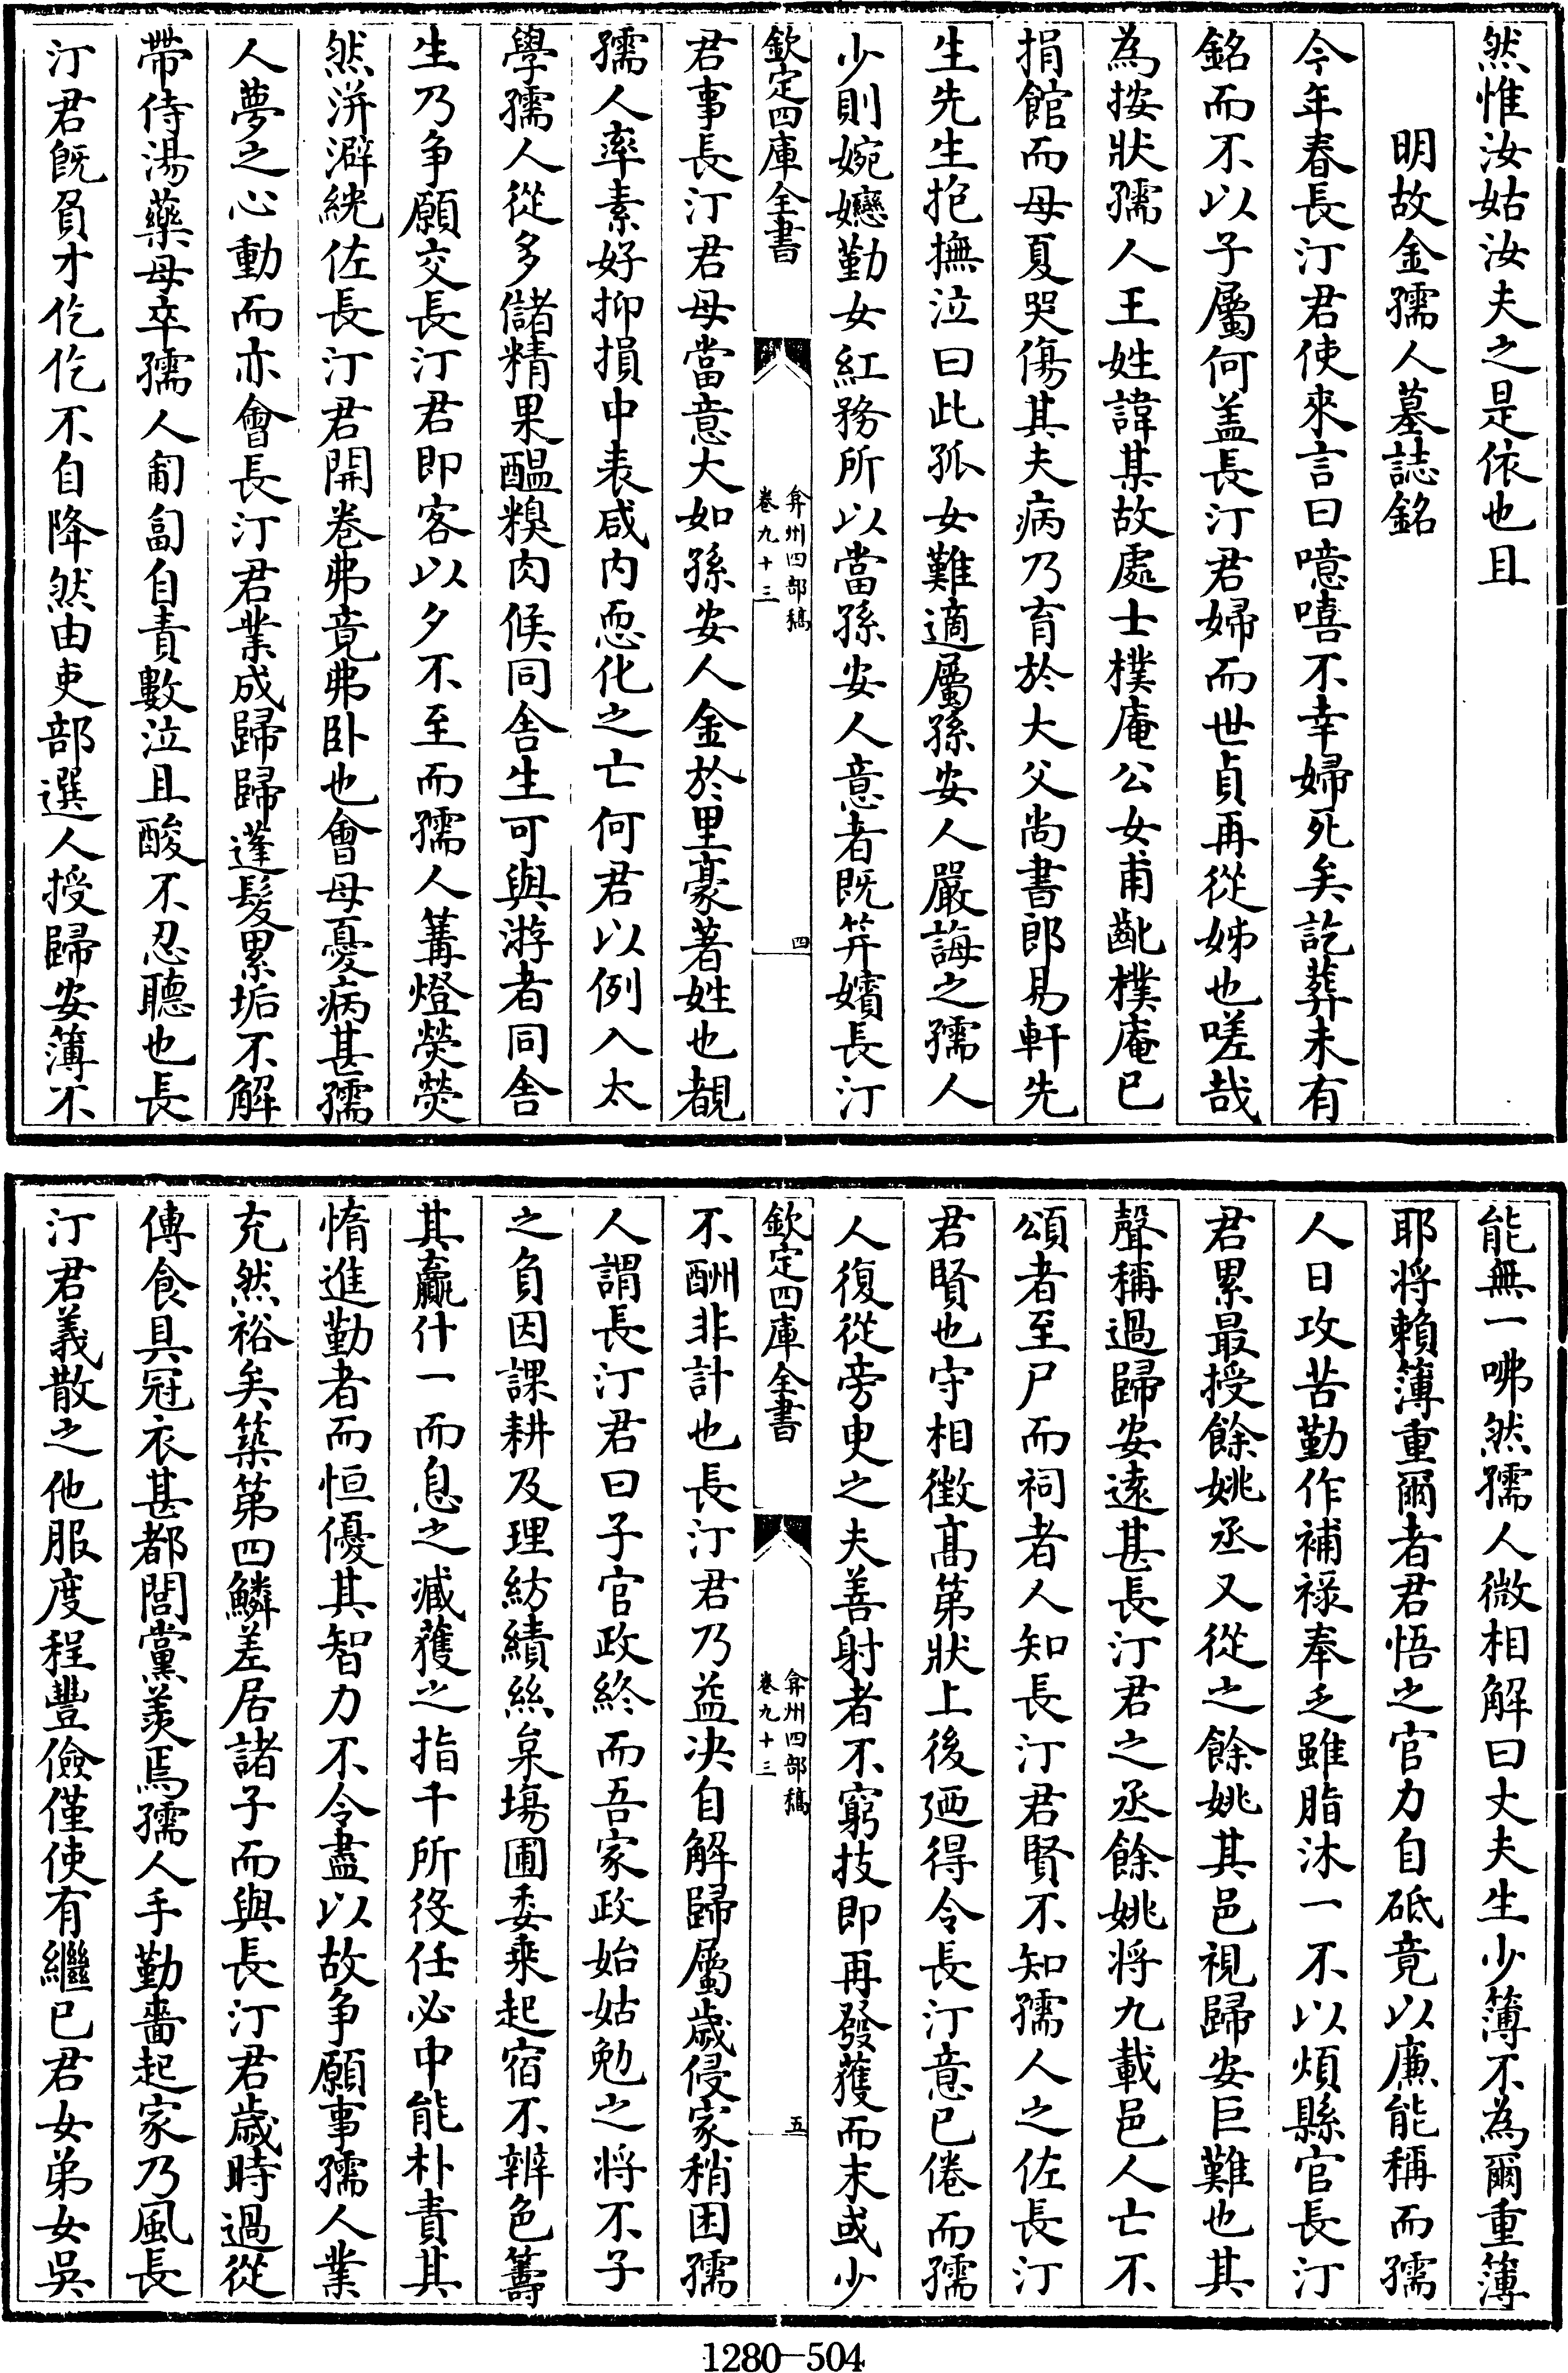 然惟汝姑汝夫之是依也且
明故金孺人墓誌銘
今年春長汀君使來言曰噫嘻不幸婦死矣訖葬未有
銘而不以子屬何盖長汀君婦而世貞再從姊也嗟哉
為按狀孺人王姓諱某故處士樸庵公女甫齔樸庵已
捐館而母夏哭傷其夫病乃育於大父尚書郎易軒先
生先生抱撫泣曰此孤女難適屬孫安人嚴誨之孺人
少則婉孌勤女紅務所以當孫安人意者既笄嬪長汀
欽定四庫全書
弇州四部稿
卷九十三
四
君事長汀君母當意大如孫安人金於里豪著姓也覩
孺人率素好抑損中表咸内恧化之亡何君以例入太
學孺人從多儲精果醖糗肉候同舍生可與游者同舍
生乃争願交長汀君即客以夕不至而孺人篝燈熒熒
然洴澼絖佐長汀君開卷弗竟弗卧也會母憂病甚孺
人夢之心動而亦會長汀君業成歸歸蓬髮累垢不解
帶侍湯藥母卒孺人匍匐自責數泣且酸不忍聽也長
汀君既負才仡仡不自降然由吏部選人授歸安簿不
能無一咈然孺人微相解曰丈夫生少簿不為爾重簿
耶将賴簿重爾者君悟之官力自砥竟以廉能稱而孺
人日攻苦勤作補祿奉乏雖脂沐一不以煩縣官長汀
君累最授餘姚丞又從之餘姚其邑視歸安巨難也其
聲稱過歸安遠甚長汀君之丞餘姚将九載邑人亡不
頌者至尸而祠者人知長汀君賢不知孺人之佐長汀
君賢也守相徵髙第狀上後廼得令長汀意已倦而孺
人復從旁臾之夫善射者不窮技即再發獲而末或少
欽定四庫全書
弇州四部稿
卷九十三
五
不酬非計也長汀君乃益决自解歸屬歲侵家稍困孺
人謂長汀君曰子官政終而吾家政始姑勉之将不子
之負因課耕及理紡績絲枲塲圃委乘起宿不辨色籌
其贏什一而息之臧獲之指千所役任必中能朴責其
惰進勤者而恒優其智力不令盡以故争願事孺人業
充然裕矣築第四鱗差居諸子而與長汀君歲時過從
傳食具冠衣甚都閭黨羡焉孺人手勤嗇起家乃風長
汀君義散之他服度程豐儉僅使有繼已君女弟女吳
1280—504